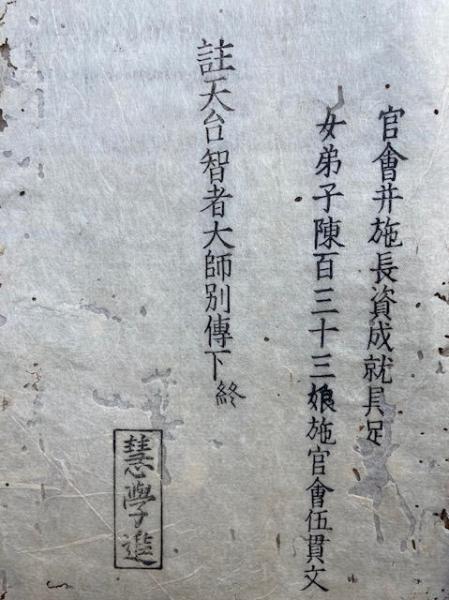 官會幷施長資成就具足
女弟子陳百三十三娘施官會伍貫文
註天台智者大師別傳下終
慧學造